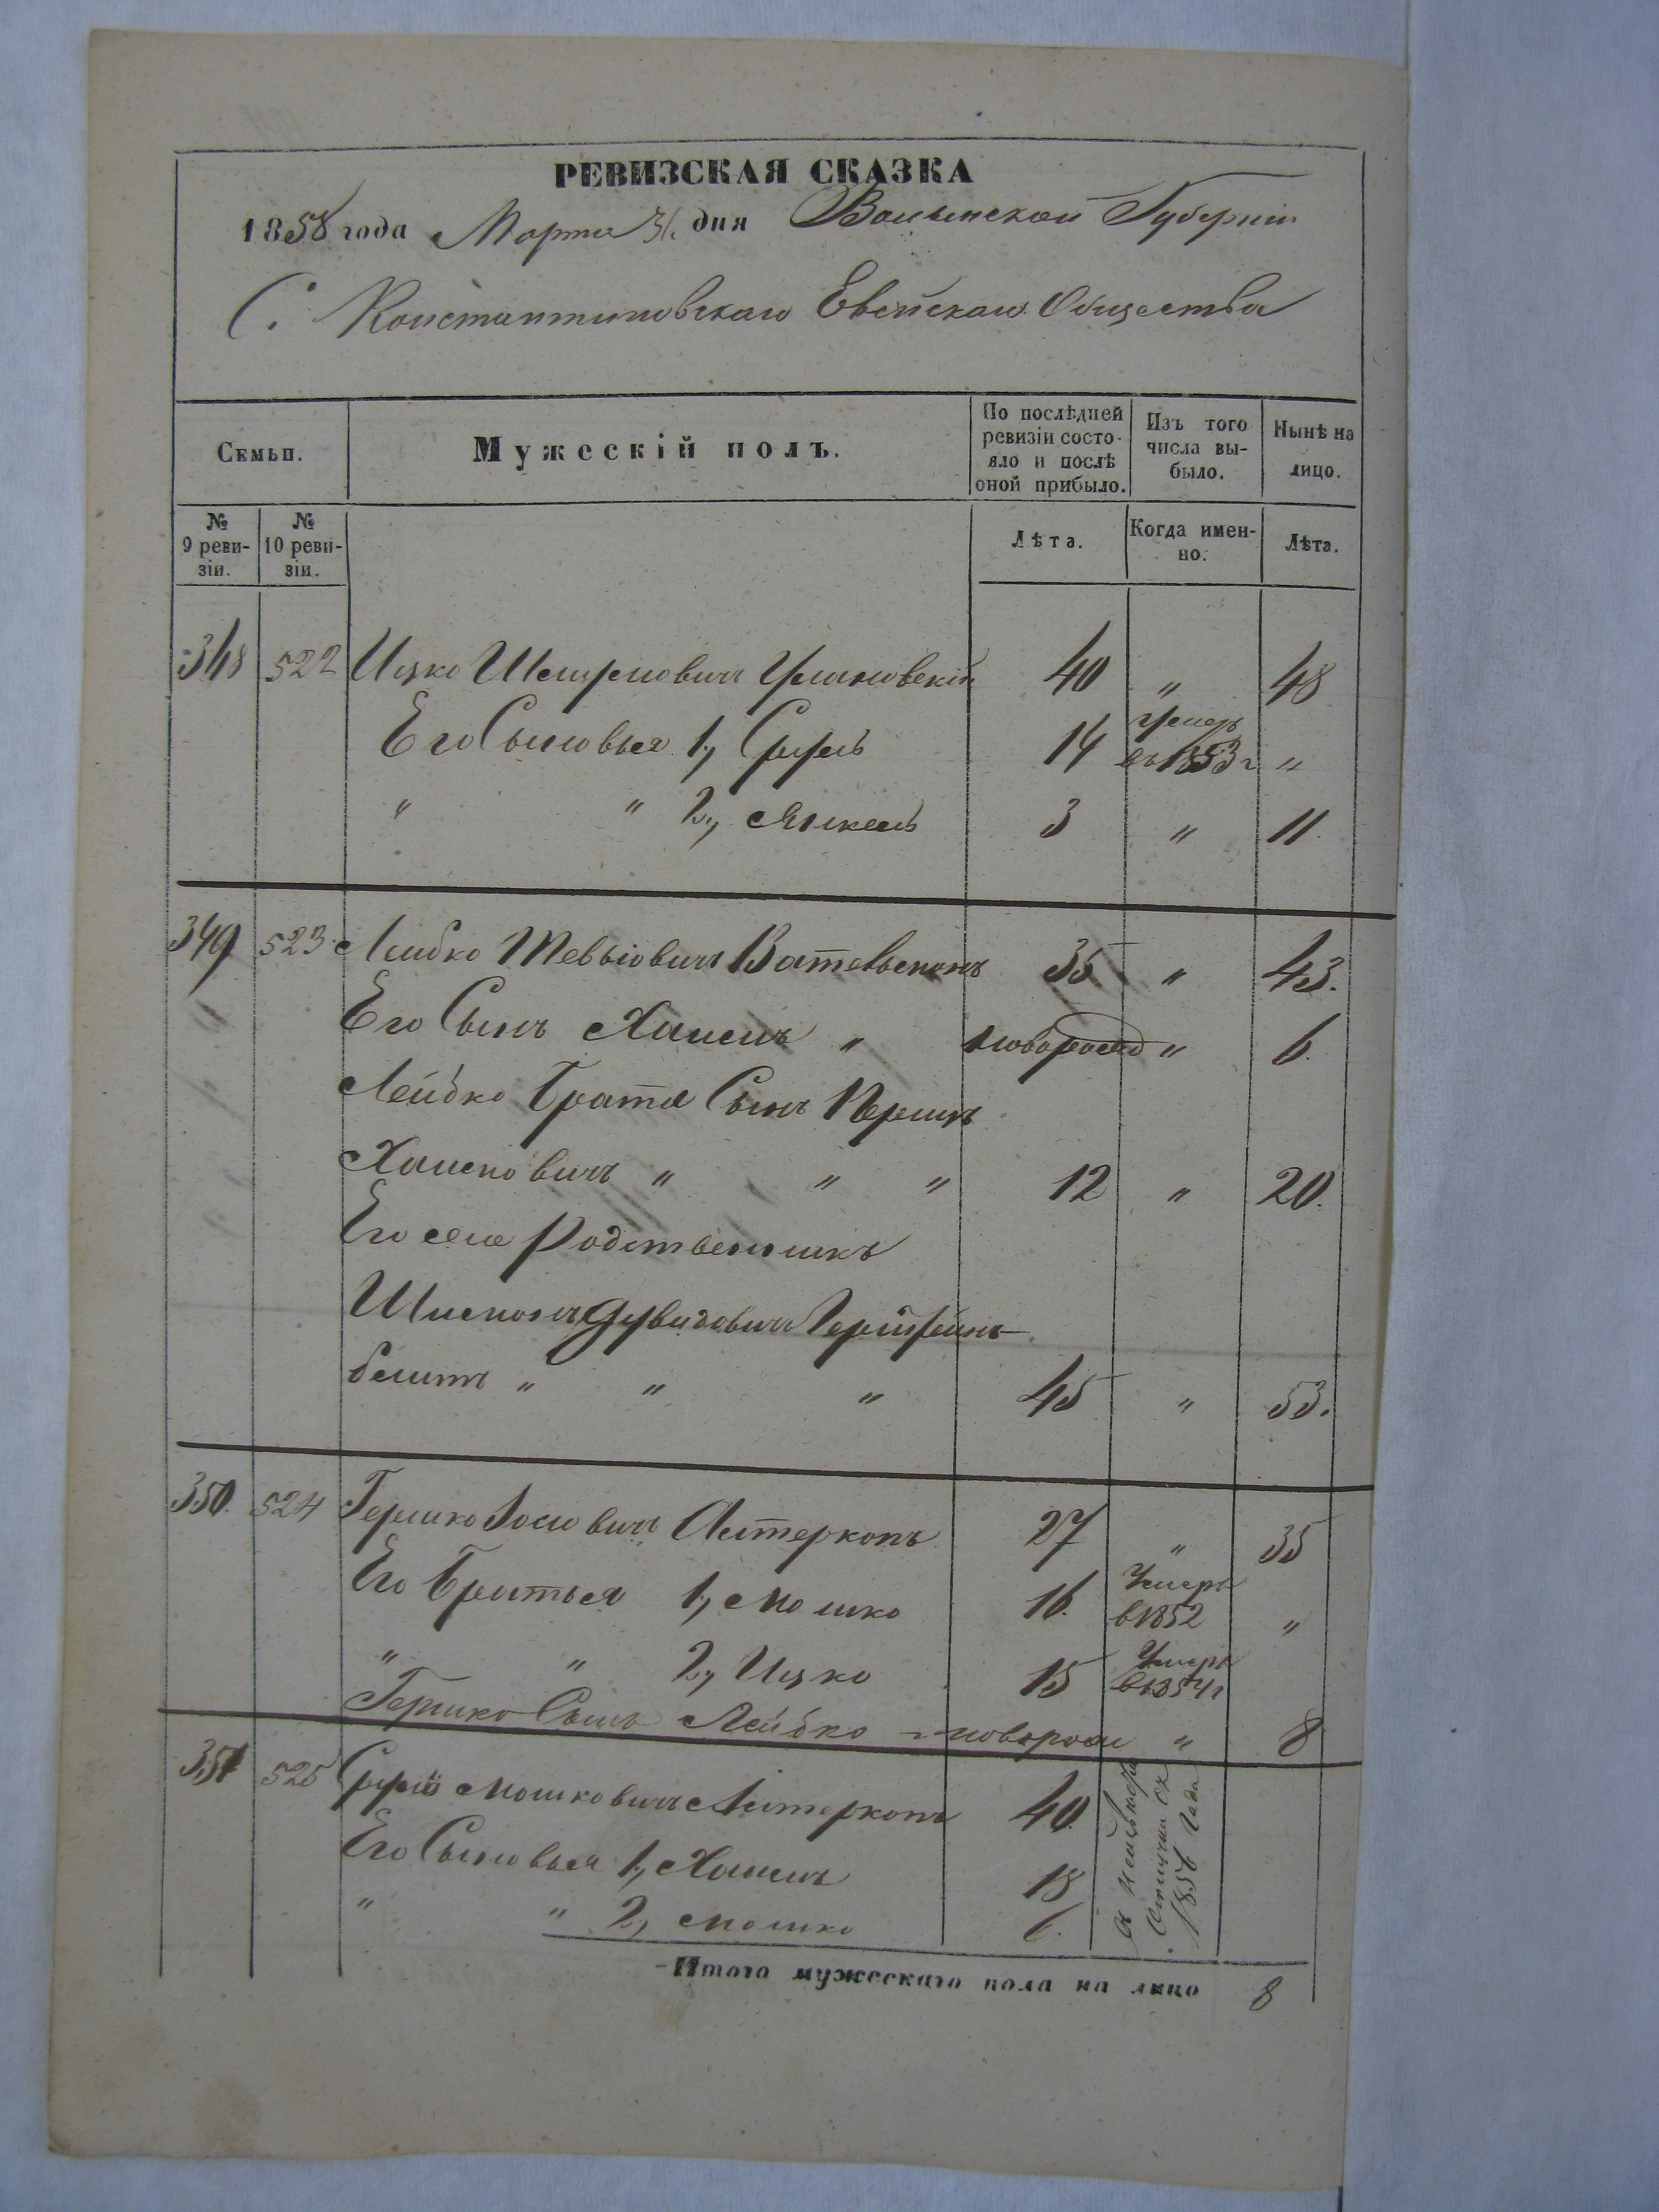 РЕВИЗСКАЯ СКАЗКА
1858 года Марта 31. дня Волынской Губерніи
С. Константиновскаго Еврейскаго Общества
Семьи.
Мужескій полъ.
По послѣдней ревизіи состояло и послѣ оной прибыло.
Изъ того числа выбыло.
Нынѣ на лицо.
№ 9 ревизіи.
№ 10 ревизіи.
Лѣта.
Когда именно.
Лѣта.
348 522 Ицко 40 " 48
Его Сыновья 1, Сруль 14 умеръ въ 1853 г "
" " 2, Янкель 3 " 11
349 523 Лейбко Тевьіовичъ 35 " 43.
Его Сынъ Хаимъ " новорожд " 6.
Лейбко Брата Сынъ
Хаимовичъ " " " 12 " 20.
Его же Родственникъ
блитъ " " " 45 " 53.
350. 524 Гершко Іосіовичъ 27 " 35
Его Братья 1, Мошко 16. Умеръ в 1852 "
" " 2, Ицко 15 Умеръ в 1854 г
Гершко Сынъ Лейбко новорож " 8
351 525 Сруль Мошковичъ 40.
Его Сыновья 1, Хаимъ 18
" " 2, Мошко 6. 1856 Года
Итого мужескаго пола на лицо 8